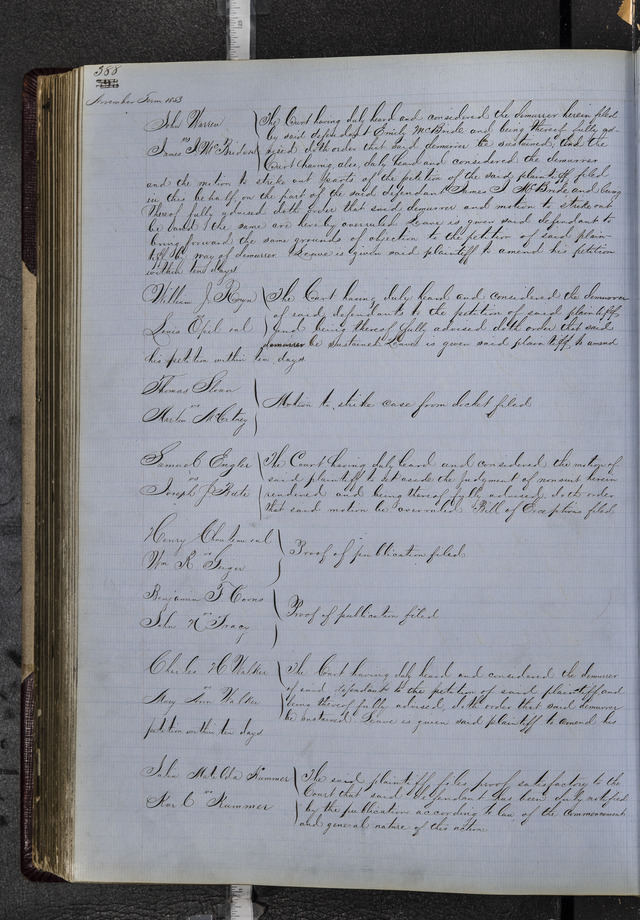 388
November Term 1853
John Warren
vs
James S McBride et al
The Court having duly heard and considered the demurrer herein filed
by said defendant Emily McBride and being thereof fully ad-
vised doth order that said demurrer be sustained, And the
Court having also, duly heard and considered the demurrer
and the motion to strike out parts of the petition of the said plaintiff filed
in this behalf, on the part of the said defendant James S McBride and being
thereof fully advised doth order that said demurrer and motion to strike out
be and the same are hereby overruled Leave is given said defendant to
bring forward the same grounds of objection to the petition of said plain-
tiff by way of demurrer Leave is given said plaintiff to amend his petition
within ten days
William J
Louis et al
The Court having duly heard and considered the demurrer
of said defendants to the petition of said plaintiff
and being thereof fully advised doth order that said
demurrer be sustained Leave is given said plaintiff to amend
his petition within ten days
Thomas Sloan
vs
Martin McCitney
Motion to strike case from docket filed
Samuel Engler
vs
Joseph J
The Court having duly heard and considered the motion of
said plaintiff to set aside the judgment of nonsuit herein
rendered and being thereof fully advised doth order
that said motion be overruled Bill of Exceptions filed
Henry et al
vs
Wm R Singer
Proof of publication filed
Benjamin T
vs
John H Tracy
Proof of publication filed
Charles H Walker
vs
Mary Ann Walker
The Court having duly heard and considered the demurrer
of said defendant to the petition of said plaintiff and
being thereof fully advised, doth order that said demurrer
be sustained Leave is given said plaintiff to amend his
petition within ten days
Julia Matilda Kummer
vs
Karl Kummer
The said plaintiff files proof satisfactory to the
Court that said defendant has been duly notified
by the publication according to law of the commencement
and general nature of this action